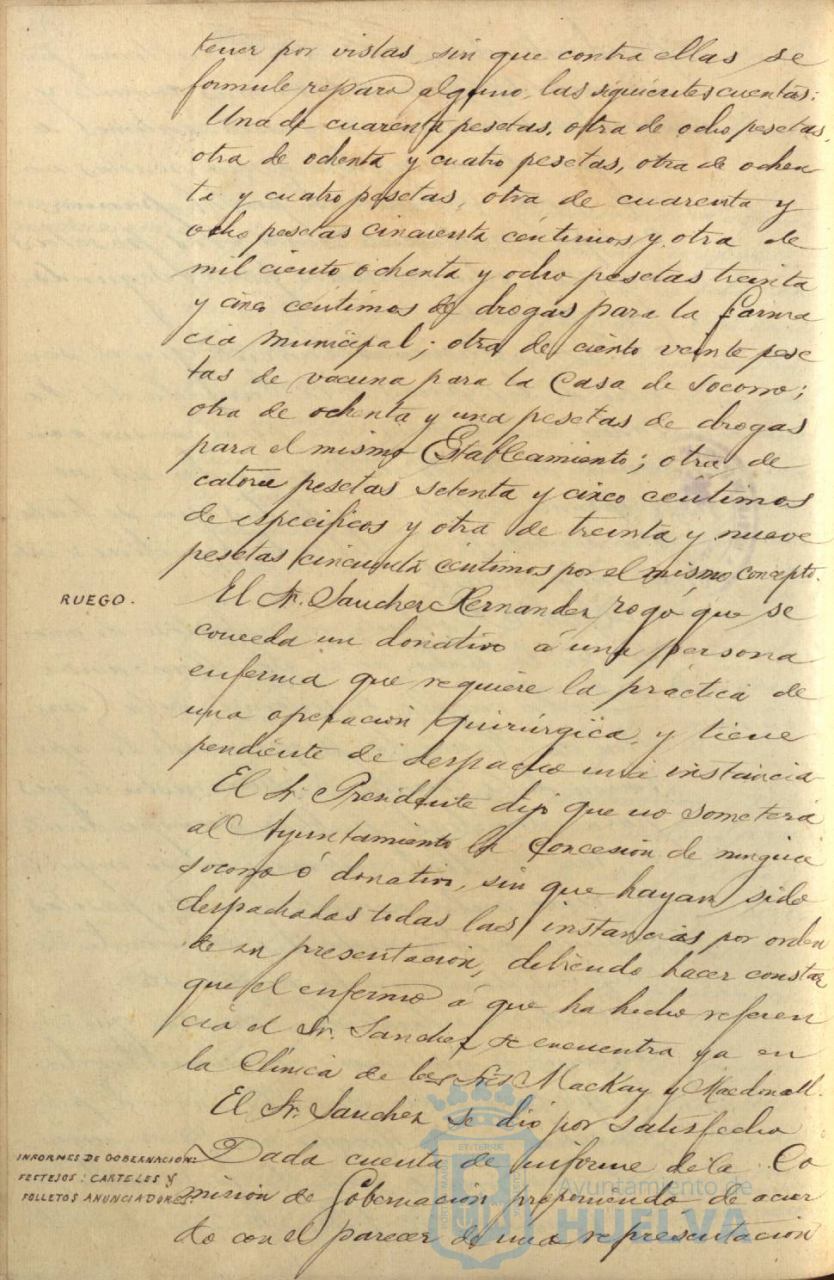 tener por vistas, sin que contra ellas se
formule reparo alguno, las siguientes cuentas:
Una de cuarenta pesetas, otra de ocho pesetas,
otra de ochenta y cuatro pesetas, otra de ochen
ta y cuatro pesetas, otra de cuarenta y
ocho pesetas cincuenta céntimos y otra de
mil ciento ochenta y ocho pesetas treinta
y cinco céntimos de drogas para la Farma
cia Municipal; otra de ciento veinte pese
tas de vacuna para la Casa de Socorro;
otra de ochenta y una pesetas de drogas
para el mismo Establecimiento; otra de
catorce pesetas setenta y cinco céntimos
de específicos y otra de treinta y nueve
pesetas cincuenta céntimos por el mismo concepto.
RUEGO.
El Sr. Sanchez Hernandez rogó que se
conceda un donativo á una persona
enferma que requiere la práctica de
una operación quirúrgica, y tiene
pendiente de despacho una instancia
El Sr. Presidente dijo que no someterá
al Ayuntamiento la concesión de ningún
socorro ó donativo, sin que hayan sido
despachadas todas las instancias por orden
de su presentación, debiendo hacer constar
que el enfermo á que ha hecho referen
cia el Sr. Sanchez se encuentra ya en
la Clínica de los Sres MacKay y Macdonall.
El Sr. Sanchez se dió por satisfecho
INFORMES DE GOBERNACION:
FESTEJOS: CARTELES Y
FOLLETOS ANUNCIADORES.
Dada cuenta de informe de la Co
misión de Gobernación proponiendo, de acuer
do con el parecer de una representación
Ayuntamiento de
HUELVA